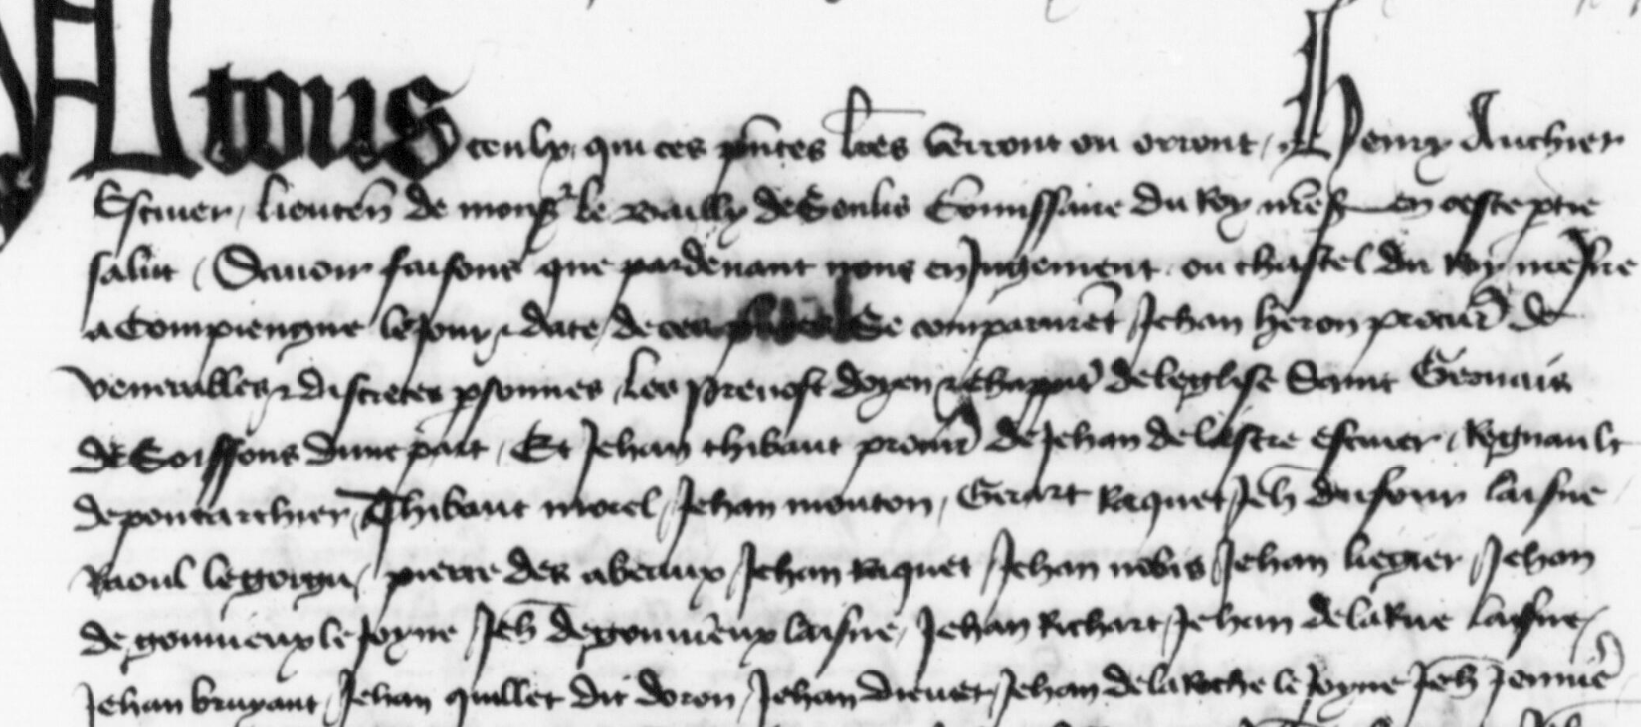 A tous ceulx qui ces pntes lres verront ou orront, Henry Auchier
Escuier, lieuten de mons le Bailly de Senlis Commissaire du Roy nre s en ceste ptie
salut, Savoir faisons que pardevant nous en Jugement ou chastel du Roy nre s
a Compiengne le Jour & date de ces Se comparurent Jehan heron procur de
venerables & discretes psonnes les prevost doyen & chappit de leglise Saint Gervais
de Soissons dune part, Et Jehan thibaut procur de Jehan de lastre escuier, Regnault
de pontarchier, Thibaut morel, Jehan mouton, Gerart Raquet, Jeh dufour laisne
Raoul legorgu, pierre des abeaux, Jehan Raquet, Jehan Jehan liegier, Jehan
de gouuieux le Joyne, Jeh de gouuieux laisne, Jehan Richart, Jehan de la Rue laisne,
Jehan bruyant, Jehan quillet dit doron, Jehan drouet, Jehan de la Roche le Joyne, Jeh